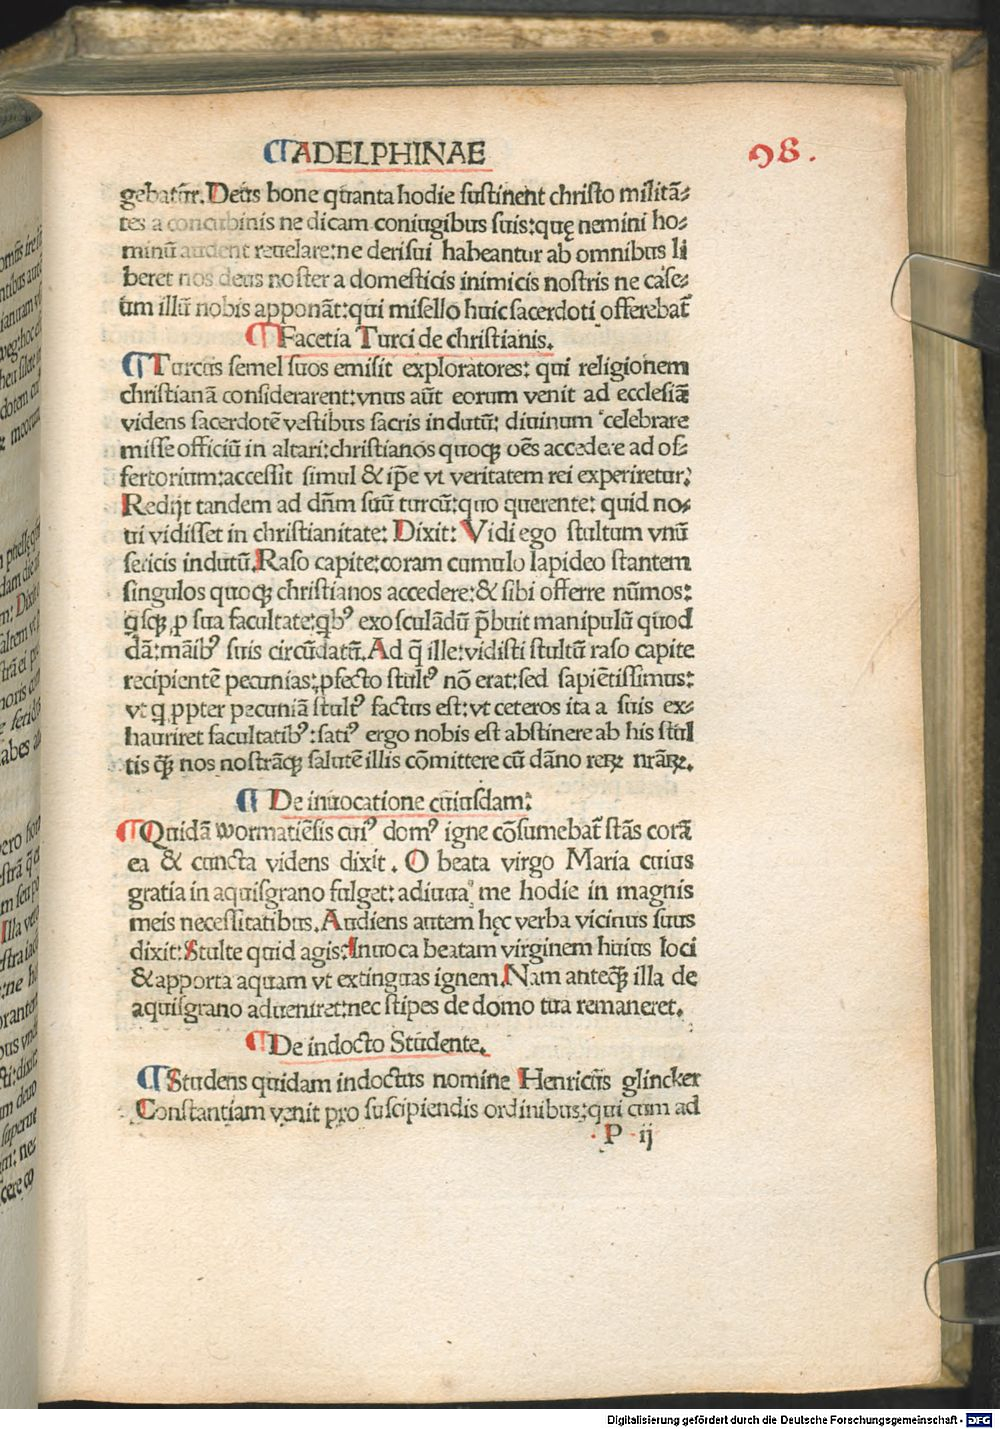 ¶ADELPHINAE
98.
gebat᷑. Deus bone quanta hodie sustinent christo militā⸗
tes a concubinis ne dicam coniugibus suis: quę nemini ho⸗
minū audent reuelare: ne derisui habeantur ab omnibus li
beret nos deus noster a domesticis inimicis nostris ne case⸗
um illū nobis apponāt: qui misello huic sacerdoti offerebat᷑
¶Facetia Turci de christianis.
¶Turcus semel suos emisit exploratores: qui religionem
christianā considerarent: vnus aūt eorum venit ad ecclesiā
videns sacerdotē vestibus sacris indutū: diuinum celebrare
misse officiū in altari: christianos quoqꝫ oēs accedere ad of⸗
fertorium: accessit simul & ip̄e vt veritatem rei experiretur:
Redijt tandem ad dn̄m suū turcū: quo querente: quid no⸗
ui vidisset in christianitate: Dixit: Vidi ego stultum vnū
sericis indutū. Raso capite: coram cumulo lapideo stantem
singulos quoqꝫ christianos accedere: & sibi offerre nūmos:
qͥsqꝫ ꝓ sua facultate: qͥbꝰ exosculādū p̄buit manipulū quod
dā: māibꝰ suis circūdatū. Ad q̄ ille: vidisti stultū raso capite
recipientē pecunias: ꝓfecto stultꝰ nō erat: sed sapiētissimus:
vt q ꝓpter pecuniā stultꝰ factus est: vt ceteros ita a suis ex⸗
hauriret facultatibꝰ: satiꝰ ergo nobis est abstinere ab his stul
tis qꝫ̄ nos nostrāqꝫ salutē illis cōmittere cū dāno reꝝ nrāꝝ.
¶ De inuocatione cuiusdam:
¶Quidā wormatiēsis cuiꝰ domꝰ igne cōsumebat᷑ stās corā
ea & cuncta videns dixit. O beata virgo Maria cuius
gratia in aquisgrano fulget: adiuua me hodie in magnis
meis necessitatibus. Audiens autem hęc verba vicinus suus
dixit: Stulte quid agis: Inuoca beatam virginem huius loci
& apporta aquam vt extinguas ignem. Nam anteqꝫ̄ illa de
aquisgrano adueniret: nec stipes de domo tua remaneret.
¶De indocto Studente.
¶Studens quidam indoctus nomine Henricus glincker
Constantiam venit pro suscipiendis ordinibus: qui cum ad
P ij
Digitalisierung gefördert durch die Deutsche Forschungsgemeinschaft - DFG